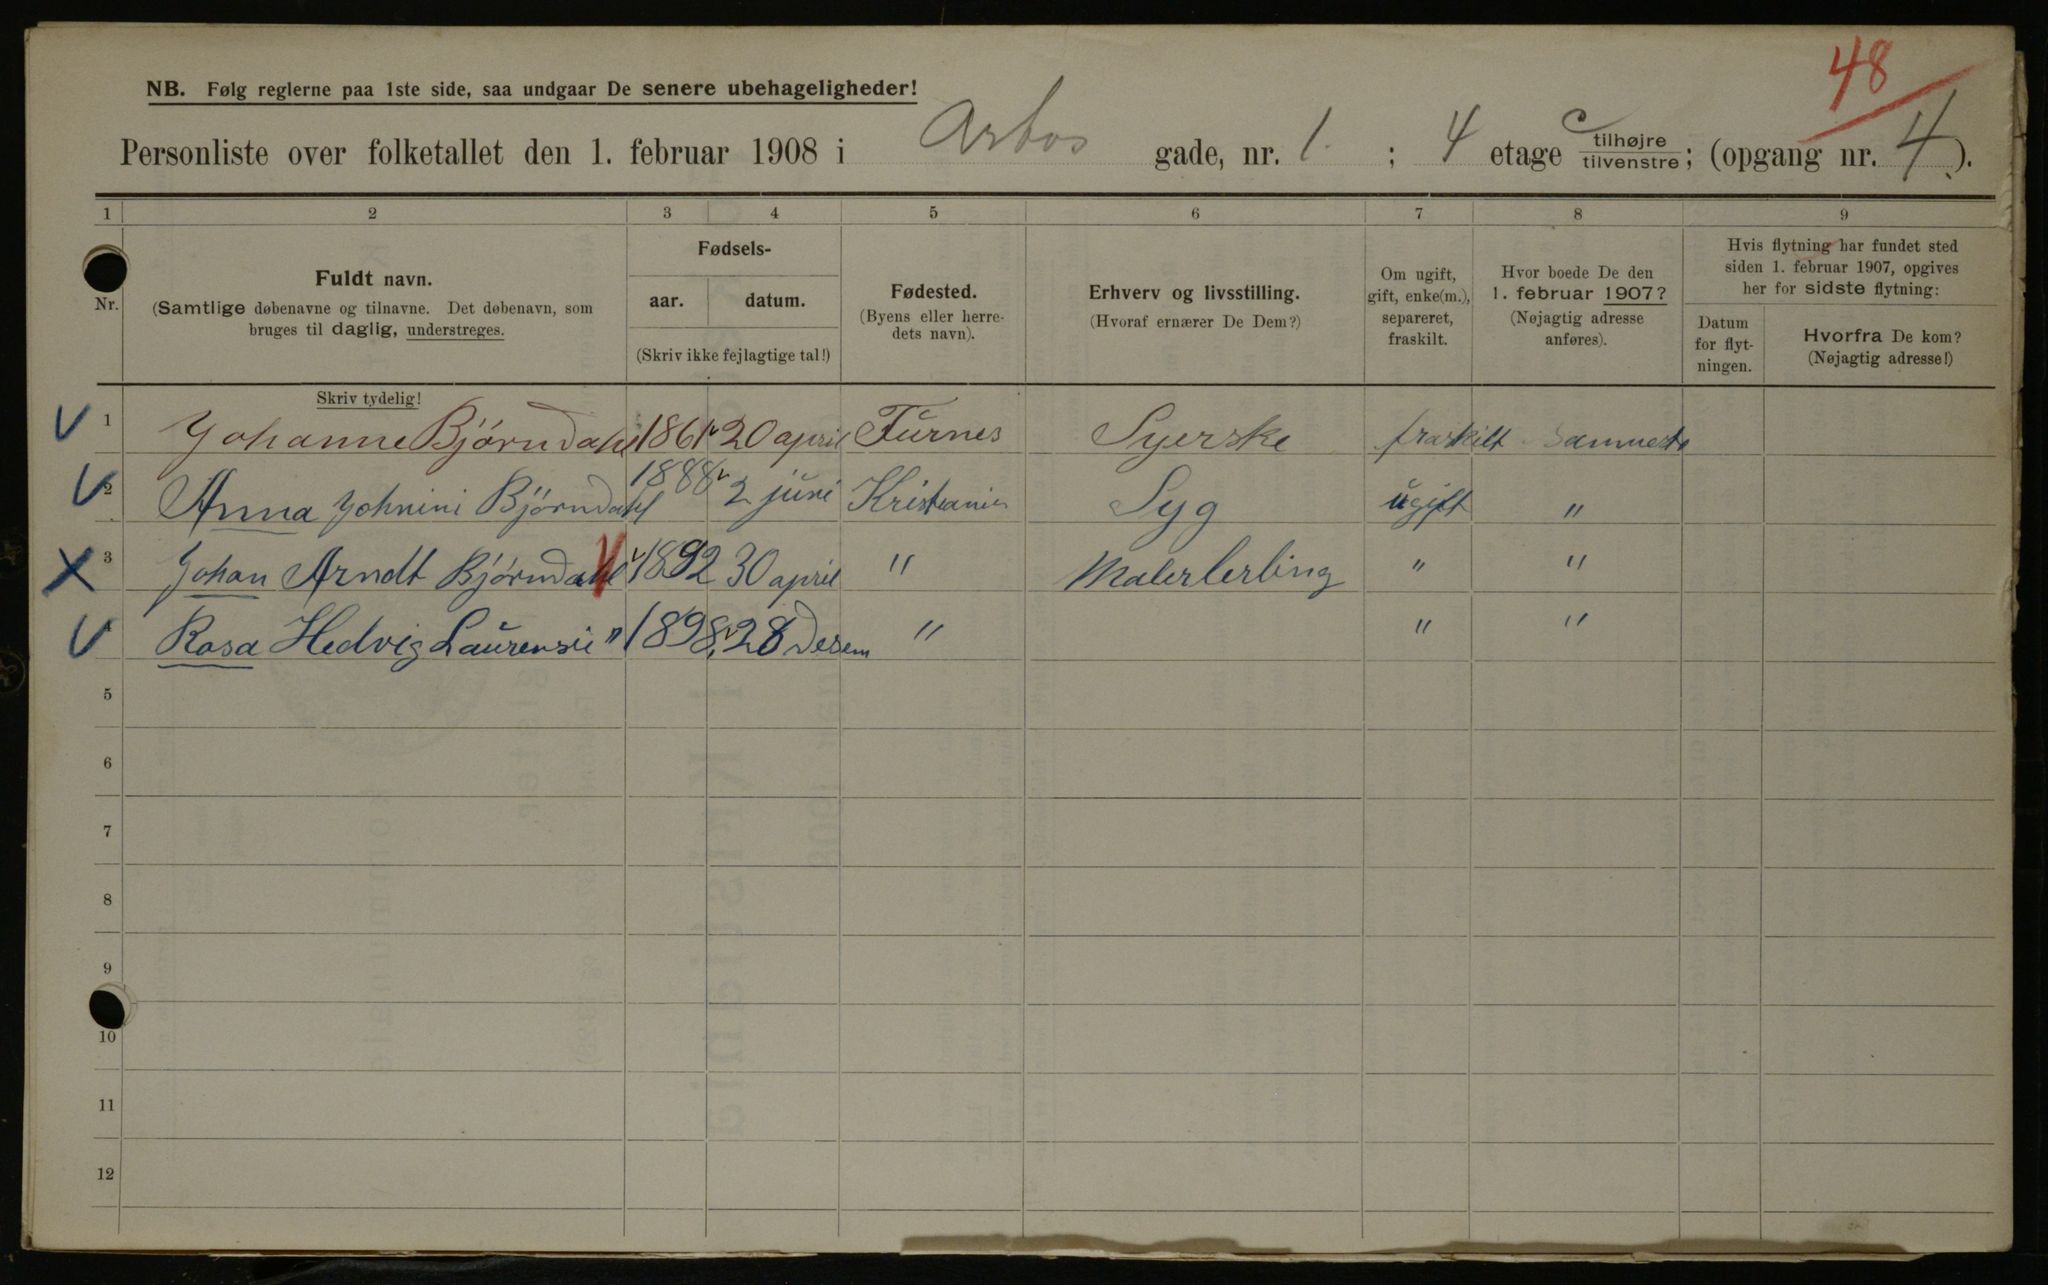 48
NB. Følg reglerne paa 1ste side, saa undgaar De senere ubehageligheder!
Personliste over folketallet den 1. februar 1908 i Arbos gade, nr. 1. ; 4 etage c tilhøjre/tilvenstre; (opgang nr. 4).
1 2 3 4 5 6 7 8 9
Nr.
Fuldt navn.
(Samtlige døbenavne og tilnavne. Det døbenavn, som
bruges til daglig, understreges.
Skriv tydelig!
Fødsels-
aar. datum.
(Skriv ikke fejlagtige tal!)
Fødested.
(Byens eller herre-
dets navn).
Erhverv og livsstilling.
(Hvoraf ernærer De Dem?)
Om ugift,
gift, enke(m.),
separeret,
fraskilt.
Hvor boede De den
1. februar 1907?
(Nøjagtig adresse
anføres).
Hvis flytning har fundet sted
siden 1. februar 1907, opgives
her for sidste flytning:
Datum
for flyt-
ningen.
Hvorfra De kom?
(Nøjagtig adresse!)
1 Johanne Bjørndahl 1861 20 april Furnes Syerske fraskilt Sammested
2 Anna Johnini Björndahl 1888 2 juni Kristiania Syg ugift "
3 Johan Arndt Bjørndahl 1892 30 april " Malerlerling " "
4 Rosa Hedvig Laurensie " 1898 28 Desem " " "
5
6
7
8
9
10
11
12